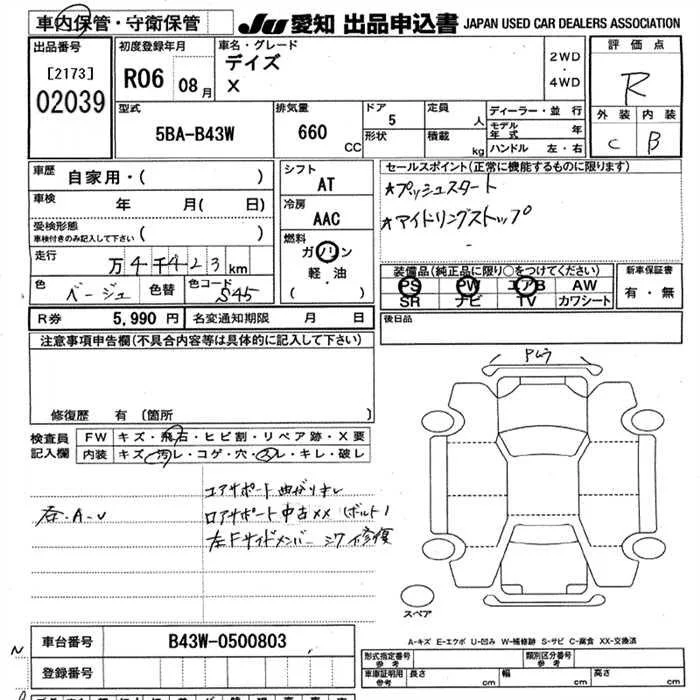 車内保管・守衛保管
JU 愛知 出品申込書 JAPAN USED CAR DEALERS ASSOCIATION
出品番号
[2173]
02039
初度登録年月
R06 08月
車名・グレード
デイズ
X
2WD
・
4WD
評価点
R
外装 内装
C B
型式
5BA-B43W
排気量
660 CC
ドア
5
定員
人
形状
積載
kg
ディーラー・並行
モデル年式 年
ハンドル 左・右
車歴 自家用・( )
車検 年 月( 日)
受検形態
車検付きのみ記入して下さい ( )
走行 万4千423km
色 ベージュ 色替 色コード S45
シフト
AT
冷房
AAC
燃料
ガソリン
・
軽・油
( )
セールスポイント(正常に機能するものに限ります)
★プッシュスタート
★アイドリングストップ
装備品(純正品に限り○をつけてください)
PS PW エアB AW
SR ナビ TV カワシート
新車保証書
有・無
R券 5,990円 名変通知期限 月 日
後日品
注意事項申告欄(不具合内容等は具体的に記入して下さい)
修復歴 有 [箇所 ]
検査員記入欄
FW キズ・飛石・ヒビ割・リペア跡・X要
内装 キズ・汚レ・コゲ・穴・スレ・キレ・破レ
コアサポート曲がりキレ
ロアサポート中古XX (ボルト)
左Fサイドメンバー シワ修復
スペア
A-キズ E-エクボ U-凹み W-補修跡 S-サビ C-腐食 XX-交換済
車台番号 B43W-0500803
登録番号
N
形式指定番号 参考
類別区分番号 参考
車庫証明用 参考 長さ cm 幅 cm 高さ cm